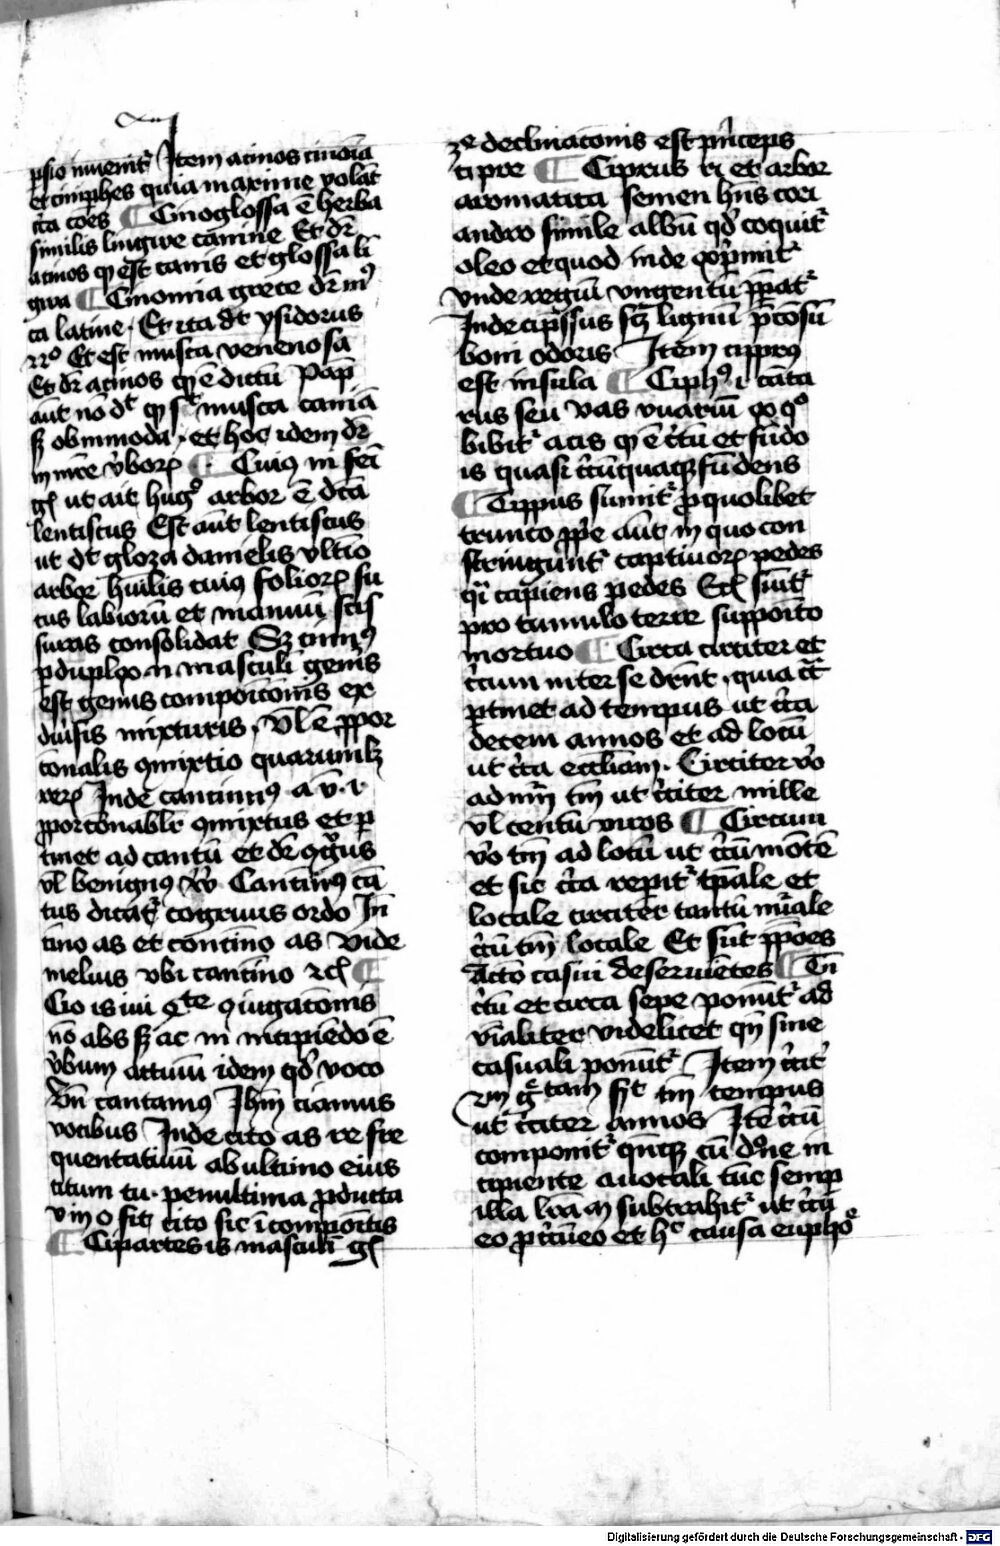 ꝑsio inuenitᷣ Item acinos cinoia
et cimphes quia maxime volāt
ita coēs ¶ Cinoglossa ē herba
similis lingwe canine Et dr̄
acinos qͥ est canis et glossa li
gwa ¶ Cinomia grece dr̄ mꝰ
ca latine . Et ita dt ysidorus
Et est musca venenosa
Et dr̄ acinos qͥ ē dictū Pap̄
aūt nō dt musca canīa
sꝫ obmmoda . et hoc idem dr̄
v̓boꝝ ¶ Cuiꝰ in fei
gͣ ut ait hugͦ arbor ē dc̄a
lentiscus Est aūt lentiscus
ut dt gloza danielis vltīo
arbor hūilis cuiꝰ folioꝝ su
cus labioru et manuū scis
suras consolidat Sꝫ cinnꝰ
masculi gen̄is
est genus compoīcōnis ex
diuꝰsis mixturis . vl̓ ē ꝓpor
conalis ꝯmixtio quarumlꝫ
rerꝫ Inde cantinnꝰ a v̄. i.
ꝓporcōnablr̄ ꝯmixtus et ꝑ
tinet ad cantū et dr̄ ꝯgͥuus
vl̓ benignꝰ Cantinnꝰ cā
tus dicatᷣ cogruus ordo In̄
cino as et concīno as vide
melius vbi cantino ⁊cͣ ¶
Cio is iui qͣte ꝯiugacōnis
nō abs sꝫ ac in incipiendo ē
v̓bum actiuū idem qd̓ voco
Vn̄ cantamꝰ Ihm̄ ciamus
vocibus Inde cito as re fre
quentatiuū ab ultimo eius
citum tu . penultima ꝓducta
vn̄ o sit cito sic ī compoītis
¶ Cipartes is masculī gͣ
ze declinacōnis est prīceps
cipre ¶ Ciprus ri et arbor
aromatica semen hn̄s cori
andro simile albū qd̓ coquitᷣ
oleo et quod inde exprimitᷣ
vnde regiū vngentū ꝑpatᷣ
Inde cipͥssus scꝫ lignū p̄cosū
boni odoris Item ciprꝰ
est insula ¶ Ciphꝰ i cāta
rus seu vas vnariū ex qͦ
bibitᷣ acis qͥ ē cͥcū et fūdo
is quasi cͥcūquaqꝫ fūdens
¶ Cippus sumitᷣ ꝓ quolibet
trunco ꝓpͥe aūt in quo con
stringūntᷣ captiuoꝝ pedes
qͥ capiens pedes Sꝫ sūitᷣ
pro tumulo terre supposito
mortuo ¶ Circa circiter et
cͥcum inter se drn̄t . quia cͥca
ꝑtinet ad tempus ut cͥca
decem annos et ad locū
ut cͥca eccliam . Circiter v̓o
ad nūm tm̄ ut cͥciter mille
vl̓ centū viros ¶ Circum
v̓o tm̄ ad locū ut cͥcū mōtē
et sic cͥca reꝑitᷣ tp̄ale et
locale circiter tantū nūale
cͥcū tm̄ locale Et sūt ꝓpōes
Actō casui deseruiētes ¶ Tn̄
cͥcū et circa sepe ponūtᷣ ad
vīaliter videlicet qn̄ sine
casuali ponūtᷣ Item cͥcit̓
tam sit tm̄ tempus
ut cͥciter annos Itē cͥcū
componitᷣ qn̄qꝫ cū dōne in
cipiente auocali tūc semꝑ
illa lrā m subtrahitᷣ ut cͥcū
eo ꝓ cͥcueo et hͨ causa euphōe
Digitalisierung gefördert durch die Deutsche Forschungsgemeinschaft - DFG